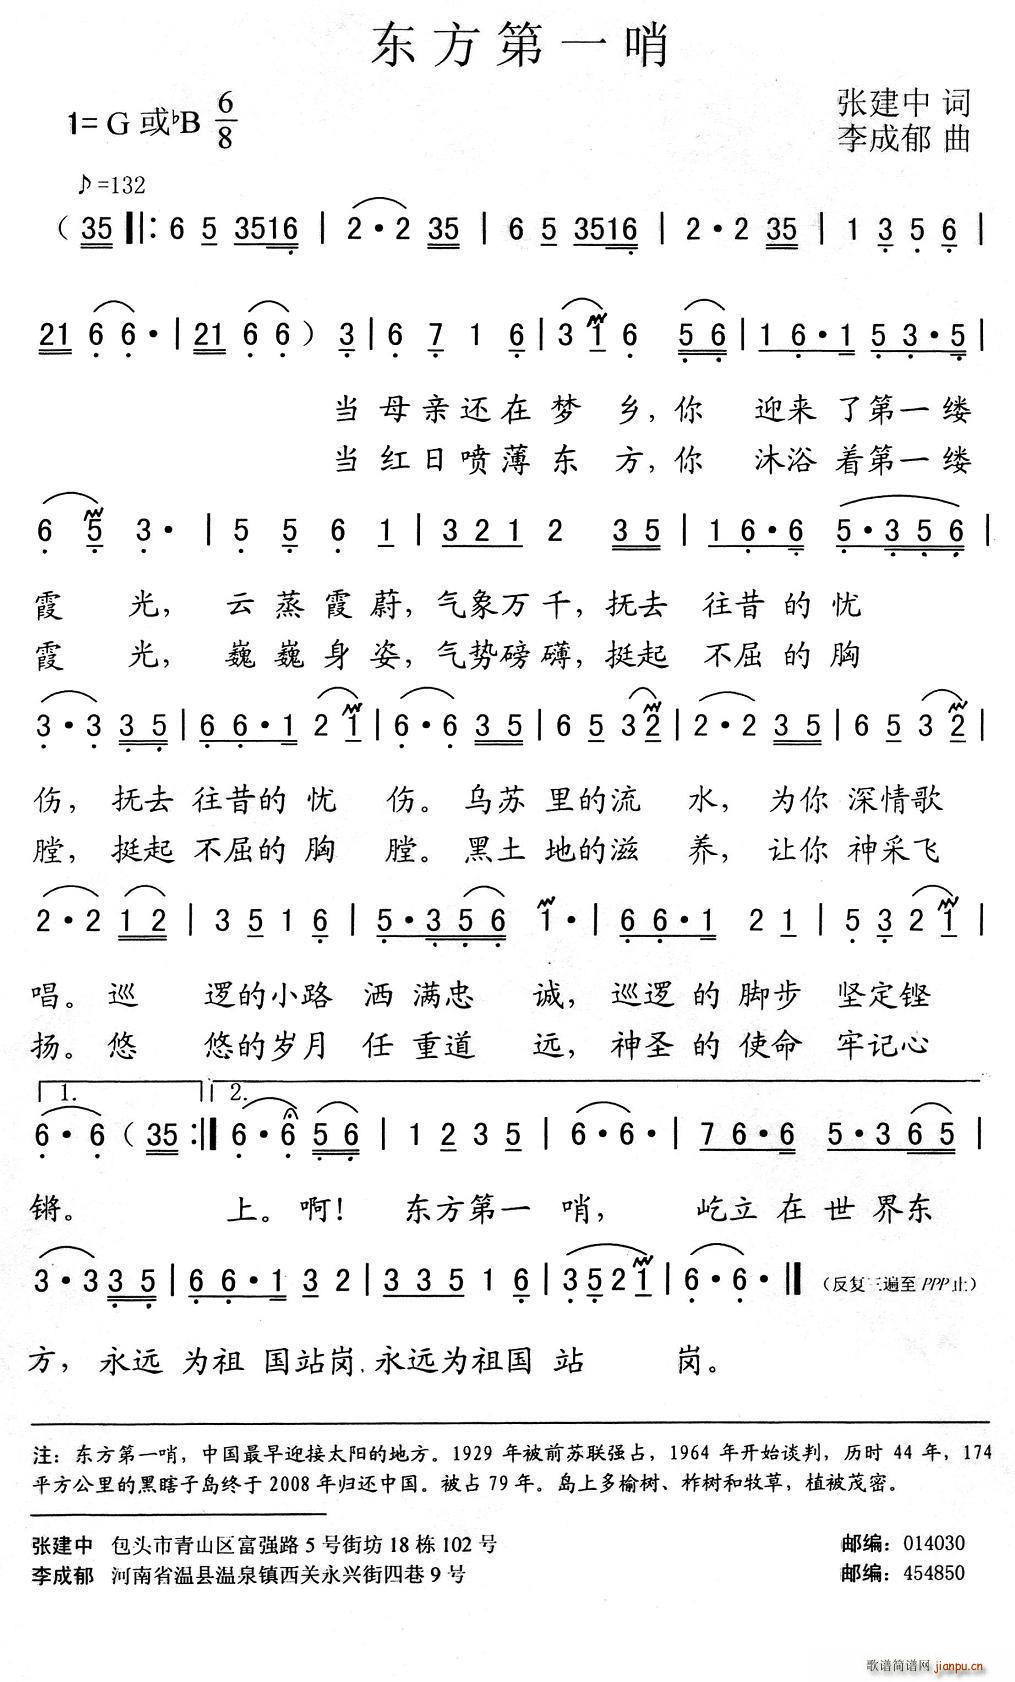 东方第一哨
1=G或♭B 6/8
张建中 词
李成郁 曲
♪=132
（35 ‖: 6 5 3516 | 2·2 35 | 6 5 3516 | 2·2 35 | 1 3 5 6 |
21 6 6· | 21 6 6）3 | 6 7 1 6 | 3 1 6 56 | 1 6·1 5 3·5 |
当 母亲还在梦 乡，你 迎来 了第一缕
当 红日喷薄东 方，你 沐浴 着第一缕
6 5 3· | 5 5 6 1 | 321 2 35 | 1 6·6 5·356 |
霞 光， 云蒸霞蔚，气象万千，抚去 往昔的忧
霞 光， 巍巍身姿，气势磅礴，挺起 不屈的胸
3·3 35 | 6 6·1 2 1 | 6·6 35 | 6 5 3 2 | 2·2 35 | 6 5 3 2 |
伤，抚去 往昔的忧 伤。乌苏 里的流 水，为你 深情歌
膛，挺起 不屈的胸 膛。黑土 地的滋 养，让你 神采飞
2·2 12 | 3 5 1 6 | 5·356 1· | 6 6·1 2 1 | 5 3 2 1 |
唱。巡 逻的小路 洒满忠 诚，巡逻的脚步 坚定铿
扬。悠 悠的岁月 任重道 远，神圣的使命 牢记心
1. 2.
6·6（35 :‖ 6·6 56 | 1 2 3 5 | 6·6· | 7 6·6 5·365 |
锵。 上。啊！ 东方第一 哨， 屹立在世界东
3·3 35 | 6 6·1 3 2 | 335 1 6 | 3521 | 6·6· ‖ （反复三遍至PPP止）
方，永远 为祖 国站岗，永远为祖国 站 岗。
注：东方第一哨，中国最早迎接太阳的地方。1929年被前苏联强占，1964年开始谈判，历时44年，174
平方公里的黑瞎子岛终于2008年归还中国。被占79年。岛上多榆树、柞树和牧草，植被茂密。
张建中 包头市青山区富强路5号街坊18栋102号 邮编：014030
李成郁 河南省温县温泉镇西关永兴街四巷9号 邮编：454850
歌谱简谱网 jianpu.cn